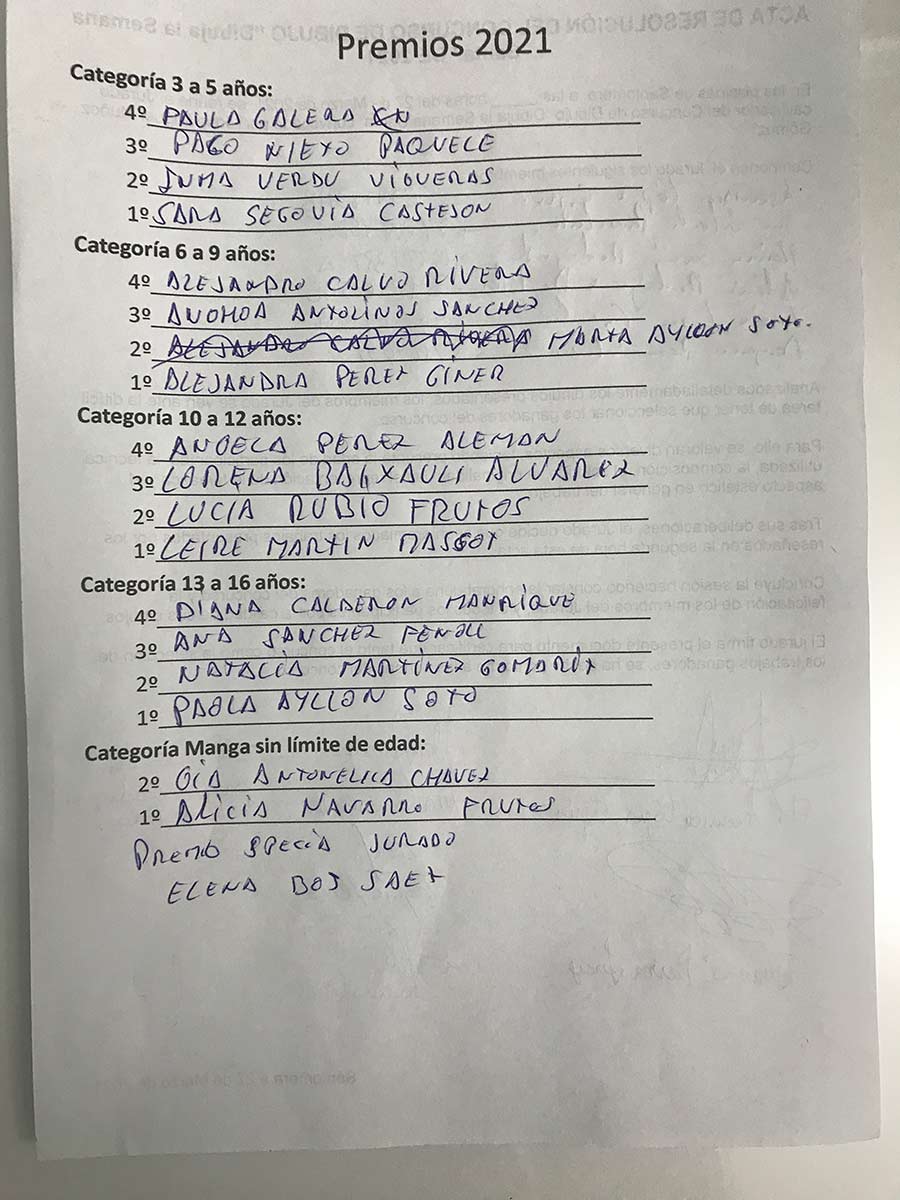 Premios 2021
Categoría 3 a 5 años:
4º PAULA GALERA
3º PACO NIETO PAQUELE
2º INMA VERDU VIGUERAS
1º SARA SEGOVIA CASTEJON
Categoría 6 a 9 años:
4º ALEJANDRO CALVO RIVERA
3º AINOHOA ANTOLINOS SANCHEZ
2º ALEJANDRO CALVO RIVERA MARTA AYLLON SOTO.
1º ALEJANDRA PEREZ GINER
Categoría 10 a 12 años:
4º ANGELA PEREZ ALEMAN
3º LORENA BAIXAULI ALVAREZ
2º LUCIA RUBIO FRUTOS
1º LEIRE MARTIN MASCOT
Categoría 13 a 16 años:
4º DIANA CALDERON MANRIQUE
3º ANA SANCHEZ FENOLL
2º NATALIA MARTINEZ GOMARIX
1º PAOLA AYLLON SOTO
Categoría Manga sin límite de edad:
2º ANTONELICA CHAVEZ
1º ALICIA NAVARRO FRUTOS
PREMIO SPECIA JURADO
ELENA BOJ SAEZ